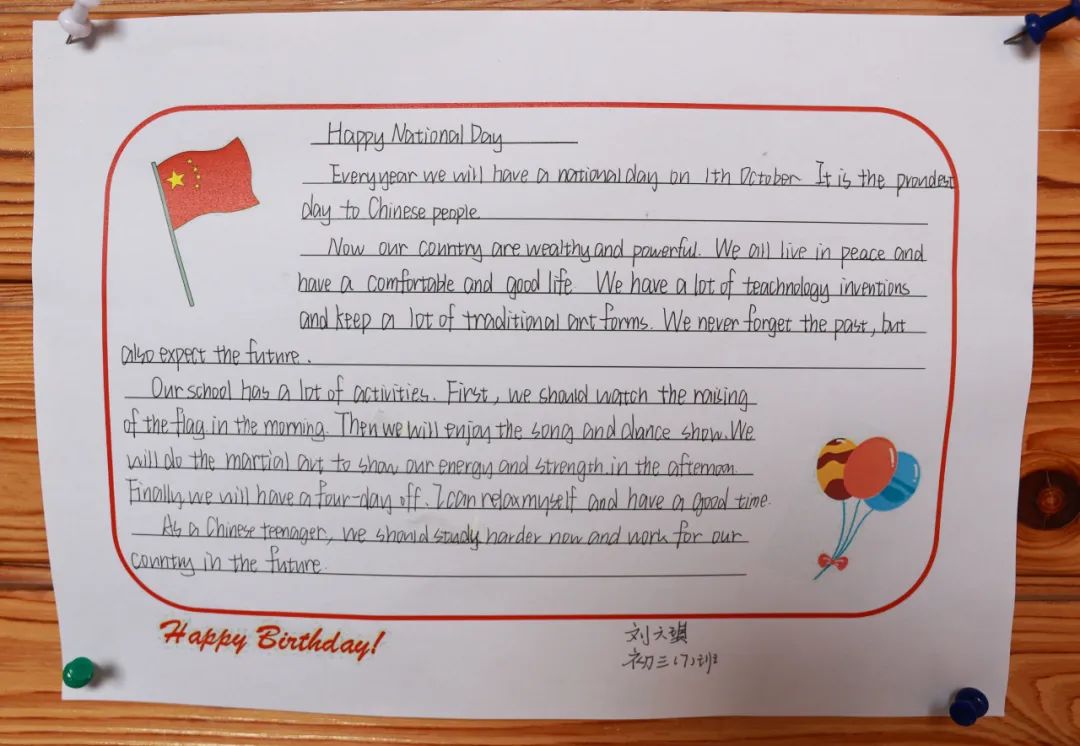 Happy National Day
Everyyear we will have a national day on 1th October. It is the proudest
day to Chinese people.
Now our country are wealthy and powerful. We all live in peace and
have a comfortable and good life. We have a lot of teachnology inventions
and keep a lot of traditional art forms. We never forget the past, but
also expect the future.
Our school has a lot of activities. First, we should watch the raising
of the flag in the morning. Then we will enjoy the song and dance show. We
will do the martial art to show our energy and strength in the afternoon.
Finally, we will have a four-day off. I can relax myself and have a good time.
As a Chinese teenager, we should study harder now and work for our
country in the future.
Happy Birthday!
刘六骐
初三(7)班